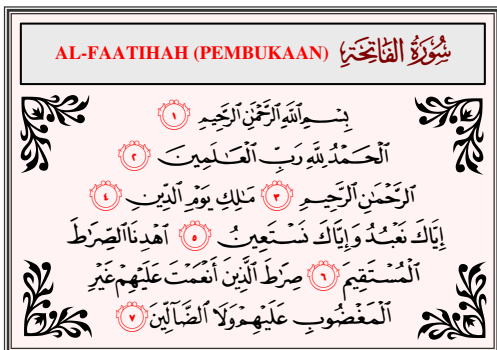 AL-FAATIHAH (PEMBUKAAN) سُورَةُ الفَاتِحَةِ
بِسْمِ ٱللَّهِ ٱلرَّحْمَٰنِ ٱلرَّحِيمِ ١
ٱلْحَمْدُ لِلَّهِ رَبِّ ٱلْعَٰلَمِينَ ٢
ٱلرَّحْمَٰنِ ٱلرَّحِيمِ ٣ مَٰلِكِ يَوْمِ ٱلدِّينِ ٤
إِيَّاكَ نَعْبُدُ وَإِيَّاكَ نَسْتَعِينُ ٥ ٱهْدِنَا ٱلصِّرَٰطَ
ٱلْمُسْتَقِيمَ ٦ صِرَٰطَ ٱلَّذِينَ أَنْعَمْتَ عَلَيْهِمْ غَيْرِ
ٱلْمَغْضُوبِ عَلَيْهِمْ وَلَا ٱلضَّآلِّينَ ٧